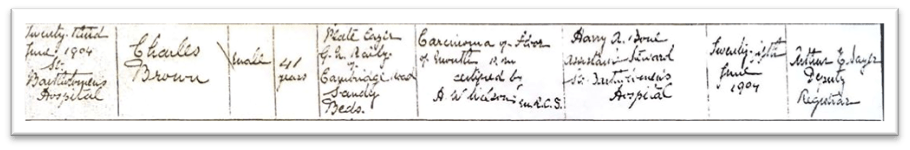 Twenty-third
June 1904
St.
Bartholomew's
Hospital
Charles
Brown
Male
41
years
Plate Layer
G. N. Railway
of
Cambridge Road
Sandy
Beds.
Carcinoma of Floor
of mouth
certified by
M.R.C.S.
Harry A.
Assistant Steward
St. Bartholomew's
Hospital
Twenty-fifth
June
1904
Arthur E. Sayer
Deputy
Registrar